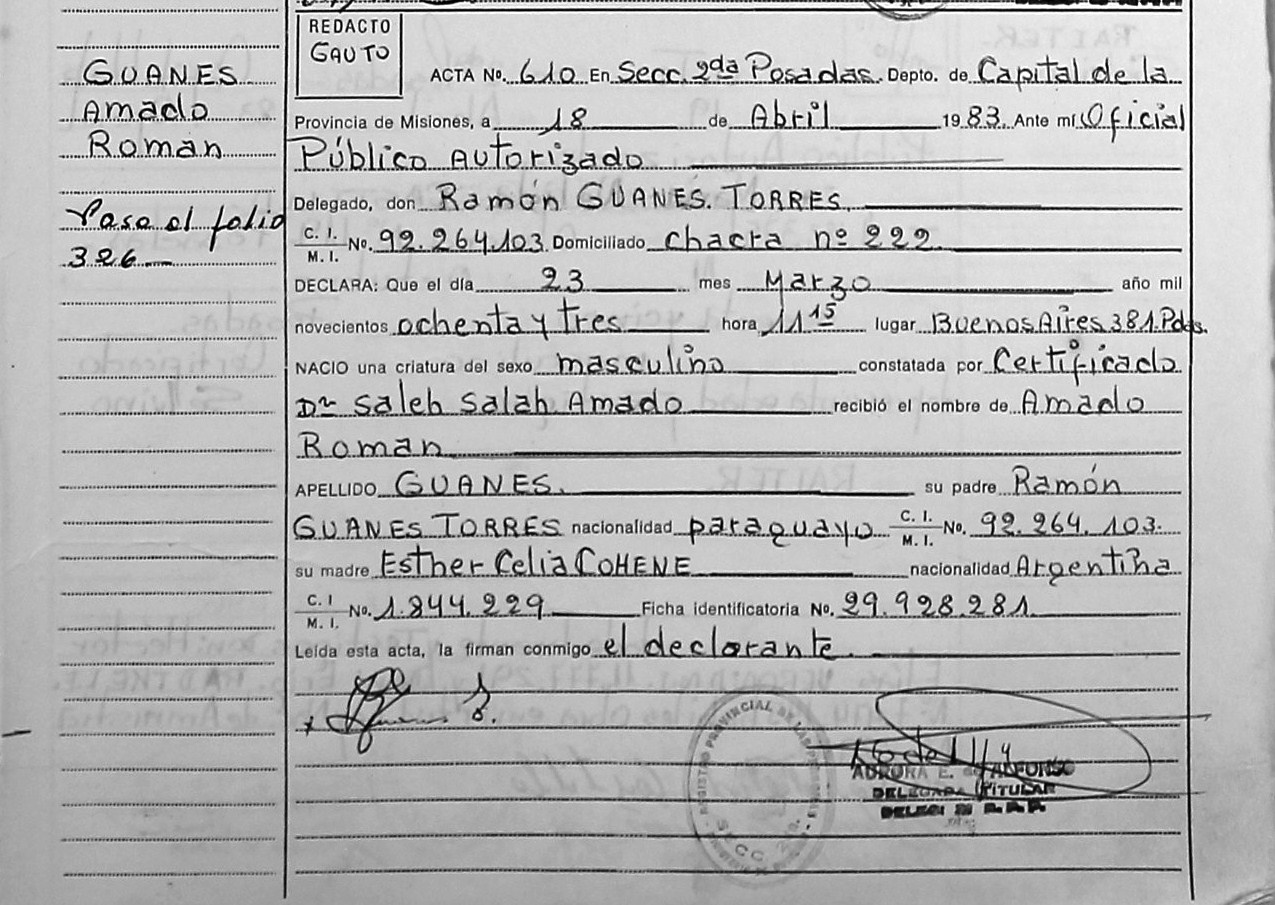 GUANES
Amado
Roman
Pasa al folio
326
REDACTO
GAUTO
ACTA No. 610 En Secc. 2da Posadas. Depto. de Capital de la
Provincia de Misiones, a 18 de Abril 1983. Ante mí Oficial
Público Autorizado
Delegado, don Ramón GUANES TORRES
C. I. / M. I. No. 92.264.103 Domiciliado chacra nº 222
DECLARA: Que el día 23 mes Marzo año mil
novecientos ochenta y tres hora 11 15 lugar Buenos Aires 381. Pdas.
NACIO una criatura del sexo masculino constatada por Certificado
Dr Saleh Salah Amado recibió el nombre de Amado
Roman
APELLIDO GUANES. su padre Ramón
GUANES TORRES nacionalidad paraguayo C. I. / M. I. No. 92.264.103.
su madre Esther Celia COHENE nacionalidad Argentina
C. I / M. I. No. 1.844.229 Ficha identificatoria No. 29.928.281.
Leída esta acta, la firman conmigo el declarante.
REGISTRO PROVINCIAL DE LAS PERSONAS
SECC. 2a.
AURORA E. de ALFONSO
DELEGADA TITULAR